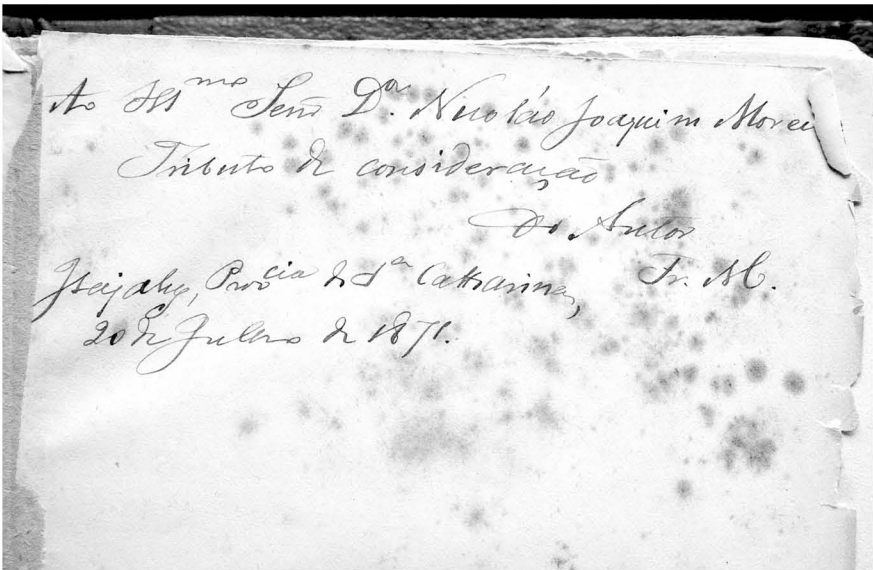 Ao Ill^mo Senr D^or. Nicoláo Joaquim Morei
Tributo de consideração
Do Autor
Itajahy, Prov^cia de S^ta Catharina, Fr. M.
20 de Julho de 1871.